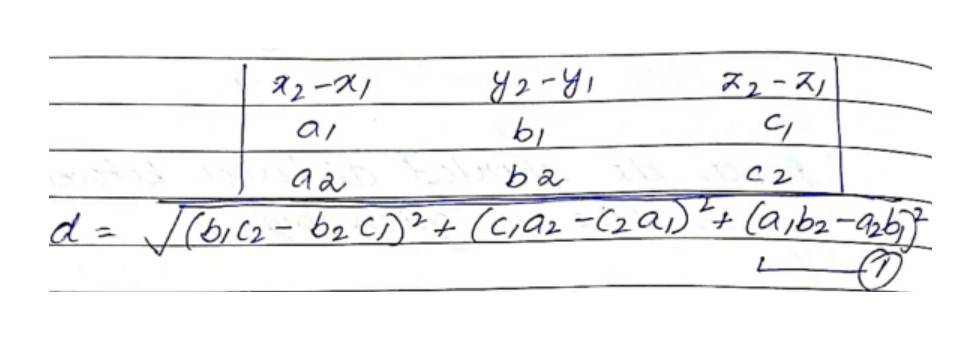 | x₂-x₁ y₂-y₁ z₂-z₁ |
| a₁ b₁ c₁ |
| a₂ b₂ c₂ |
d = √(b₁c₂ - b₂c₁)² + (c₁a₂ - c₂a₁)² + (a₁b₂ - a₂b₁)²
①